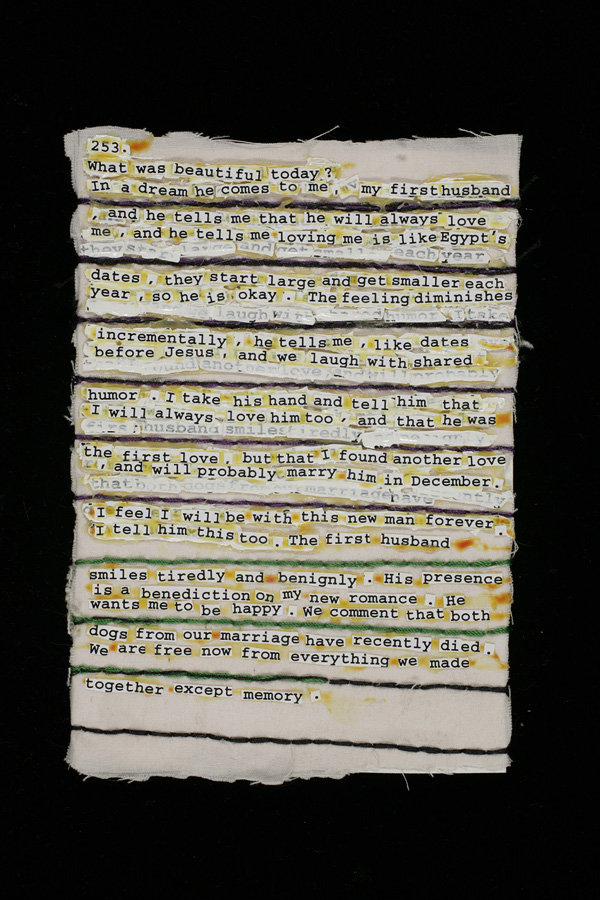 253.
What was beautiful today?
In a dream he comes to me, my first husband
, and he tells me that he will always love
me, and he tells me loving me is like Egypt's
they start large and get smaller each year
dates, they start large and get smaller each
year, so he is okay. The feeling diminishes
laugh with humor I take
incrementally, he tells me, like dates
before Jesus, and we laugh with shared
found another love and will probably
humor. I take his hand and tell him that
I will always love him too, and that he was
first husband smiles tiredly
the first love, but that I found another love
, and will probably marry him in December.
that both dogs from marriage have recently
I feel I will be with this new man forever.
I tell him this too. The first husband
smiles tiredly and benignly. His presence
is a benediction on my new romance. He
wants me to be happy. We comment that both
dogs from our marriage have recently died.
We are free now from everything we made
together except memory.